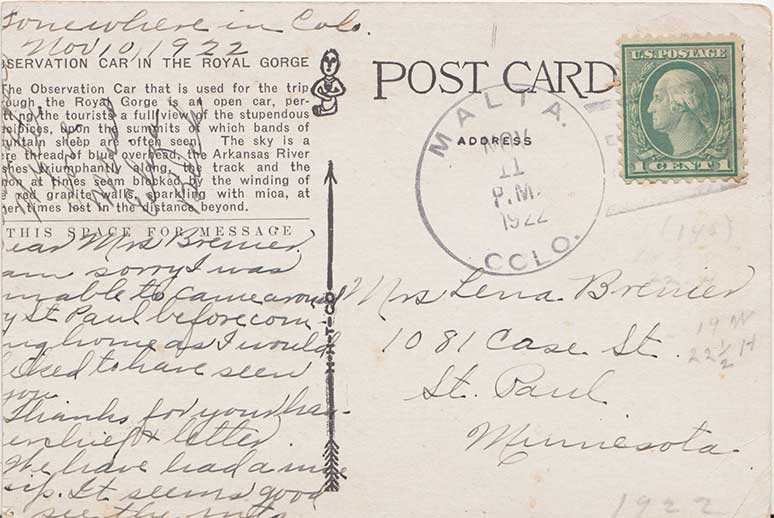 Somewhere in Colo.
Nov 10, 1922
BSERVATION CAR IN THE ROYAL GORGE
The Observation Car that is used for the trip
ough the Royal Gorge is an open car, per-
tting the tourists a full view of the stupendous
cipices, upon the summits of which bands of
untain sheep are often seen. The sky is a
ere thread of blue overhead, the Arkansas River
shes triumphantly along the track and the
non at times seem blocked by the winding of
e red granite walls, sparkling with mica, at
er times lost in the distance beyond.
THIS SPACE FOR MESSAGE
ear Mrs Bremer.
am sorry I was
unable to came around
y St Paul before com-
ng home as I would
liked to have seen
you.
Thanks for your han-
erchief & letter.
We have had a nice
rip. It seems good
see the mts
H-H-T-CO
POST CARD
ADDRESS
MALTA.
NOV
11
P.M.
1922
COLO.
U.S. POSTAGE
1 CENT 1
Mrs Lena Bremer
1081 Case St.
St. Paul
Minnesota.
(145)
19 W
22½ H
1922